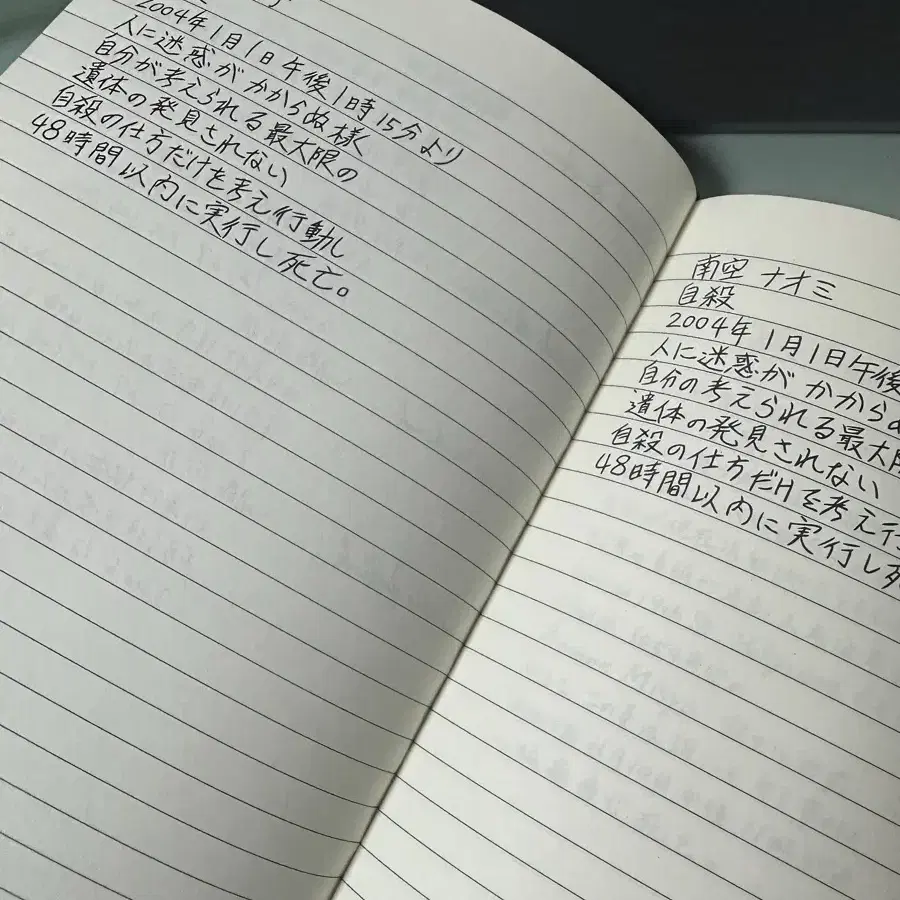 2004年1月1日午後1時15分より
人に迷惑がかからぬ様
自分が考えられる最大限の
遺体の発見されない
自殺の仕方だけを考え行動し
48時間以内に実行し死亡。
南空 ナオミ
自殺
2004年1月1日午後
人に迷惑がかから
自分の考えられる最大
遺体の発見されない
自殺の仕方だけを考え行
48時間以内に実行し死